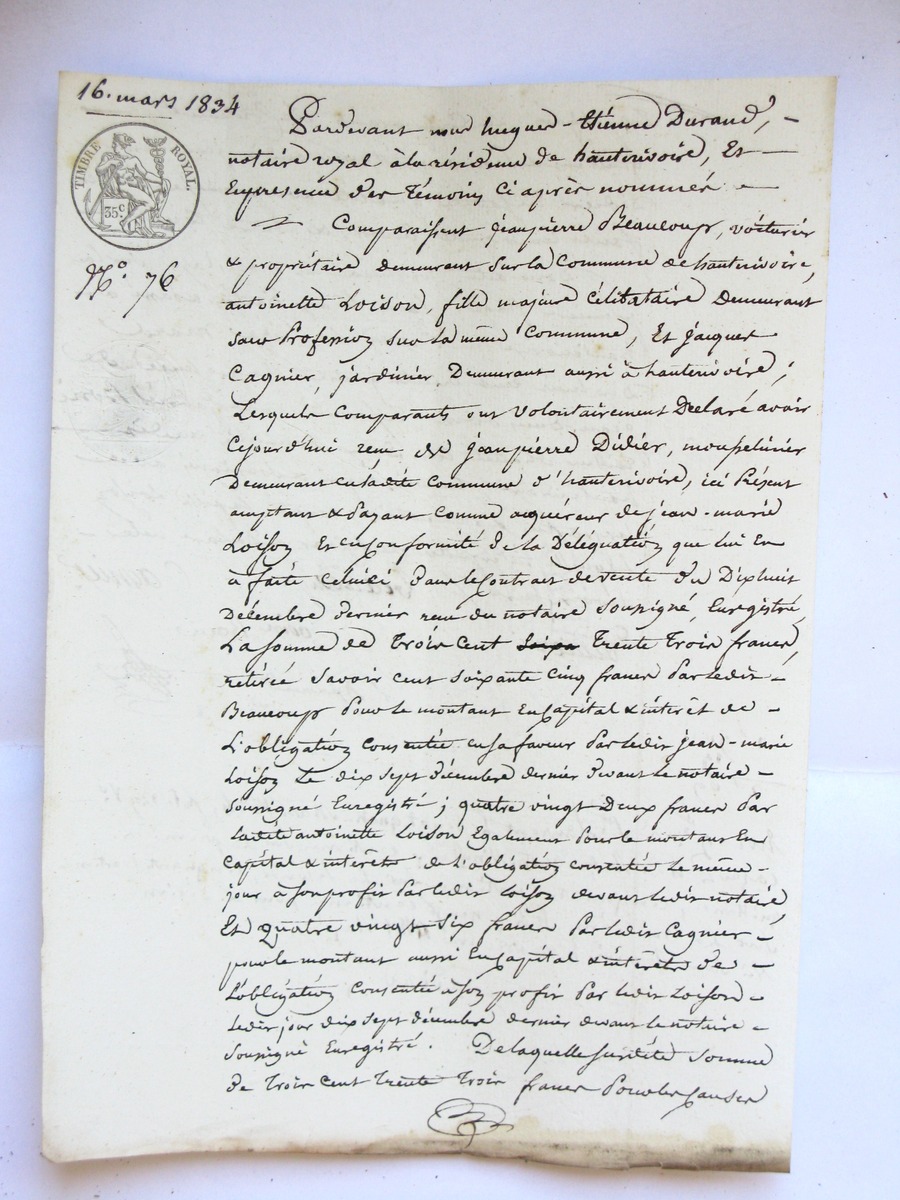 16. mars 1834
TIMBRE ROYAL.
35 c
N.º 76
Pardevant nous hugues-Etienne Durand, -
notaire royal à la résidence de hauterivoire, Et -
En presence des témoins ci après nommés -
Comparaissent jeanpierre Beaucoup, voiturier
& propriétaire demeurant sur la Commune de hauterivoire,
antoinette Loison, fille majeure célibataire Demeurant
sans Profession sur la même Commune, Et jacques
Cagnier, jardinier Demeurant aussi à hauterivoire;
Lesquels Comparants ont Volontairement Declaré avoir
Cejourd'hui reçu de jeanpierre Didier, mousselinier
Demeurant en ladite Commune d'hauterivoire, ici Présent
acceptant & Payant Comme acquéreur de jean-marie
Loison Et en Conformité de la Délégation que lui En
à faite celui ci dans le Contrat de vente du Dix huit
Décembre dernier reçu du notaire soussigné, Enregistré,
La somme de Trois Cent Trente Trois francs,
retirée savoir cent soixante Cinq francs Par ledit -
Beaucoup Pour le montant En Capital & intérêt de -
L'obligation Consentie en sa faveur Par ledit jean-marie
Loison Le dix sept décembre dernier devant le notaire -
soussigné Enregistré; quatre vingt Deux francs Par
ladite antoinette Loison Egalement Pour le montant En
Capital & intérêts de L'obligation consentie Le même -
jour à son profit Par ledit Loison devant ledit notaire,
Et quatre vingt Six francs Par ledit Cagnier -
pour le montant aussi En Capital & intérêts de -
L'obligation Consentie à son profit Par ledit Loison -
ledit jour dix sept décembre dernier devant le notaire -
soussigné Enregistré. De laquelle susdite somme
de Trois Cent Trente Trois francs Pour les causes